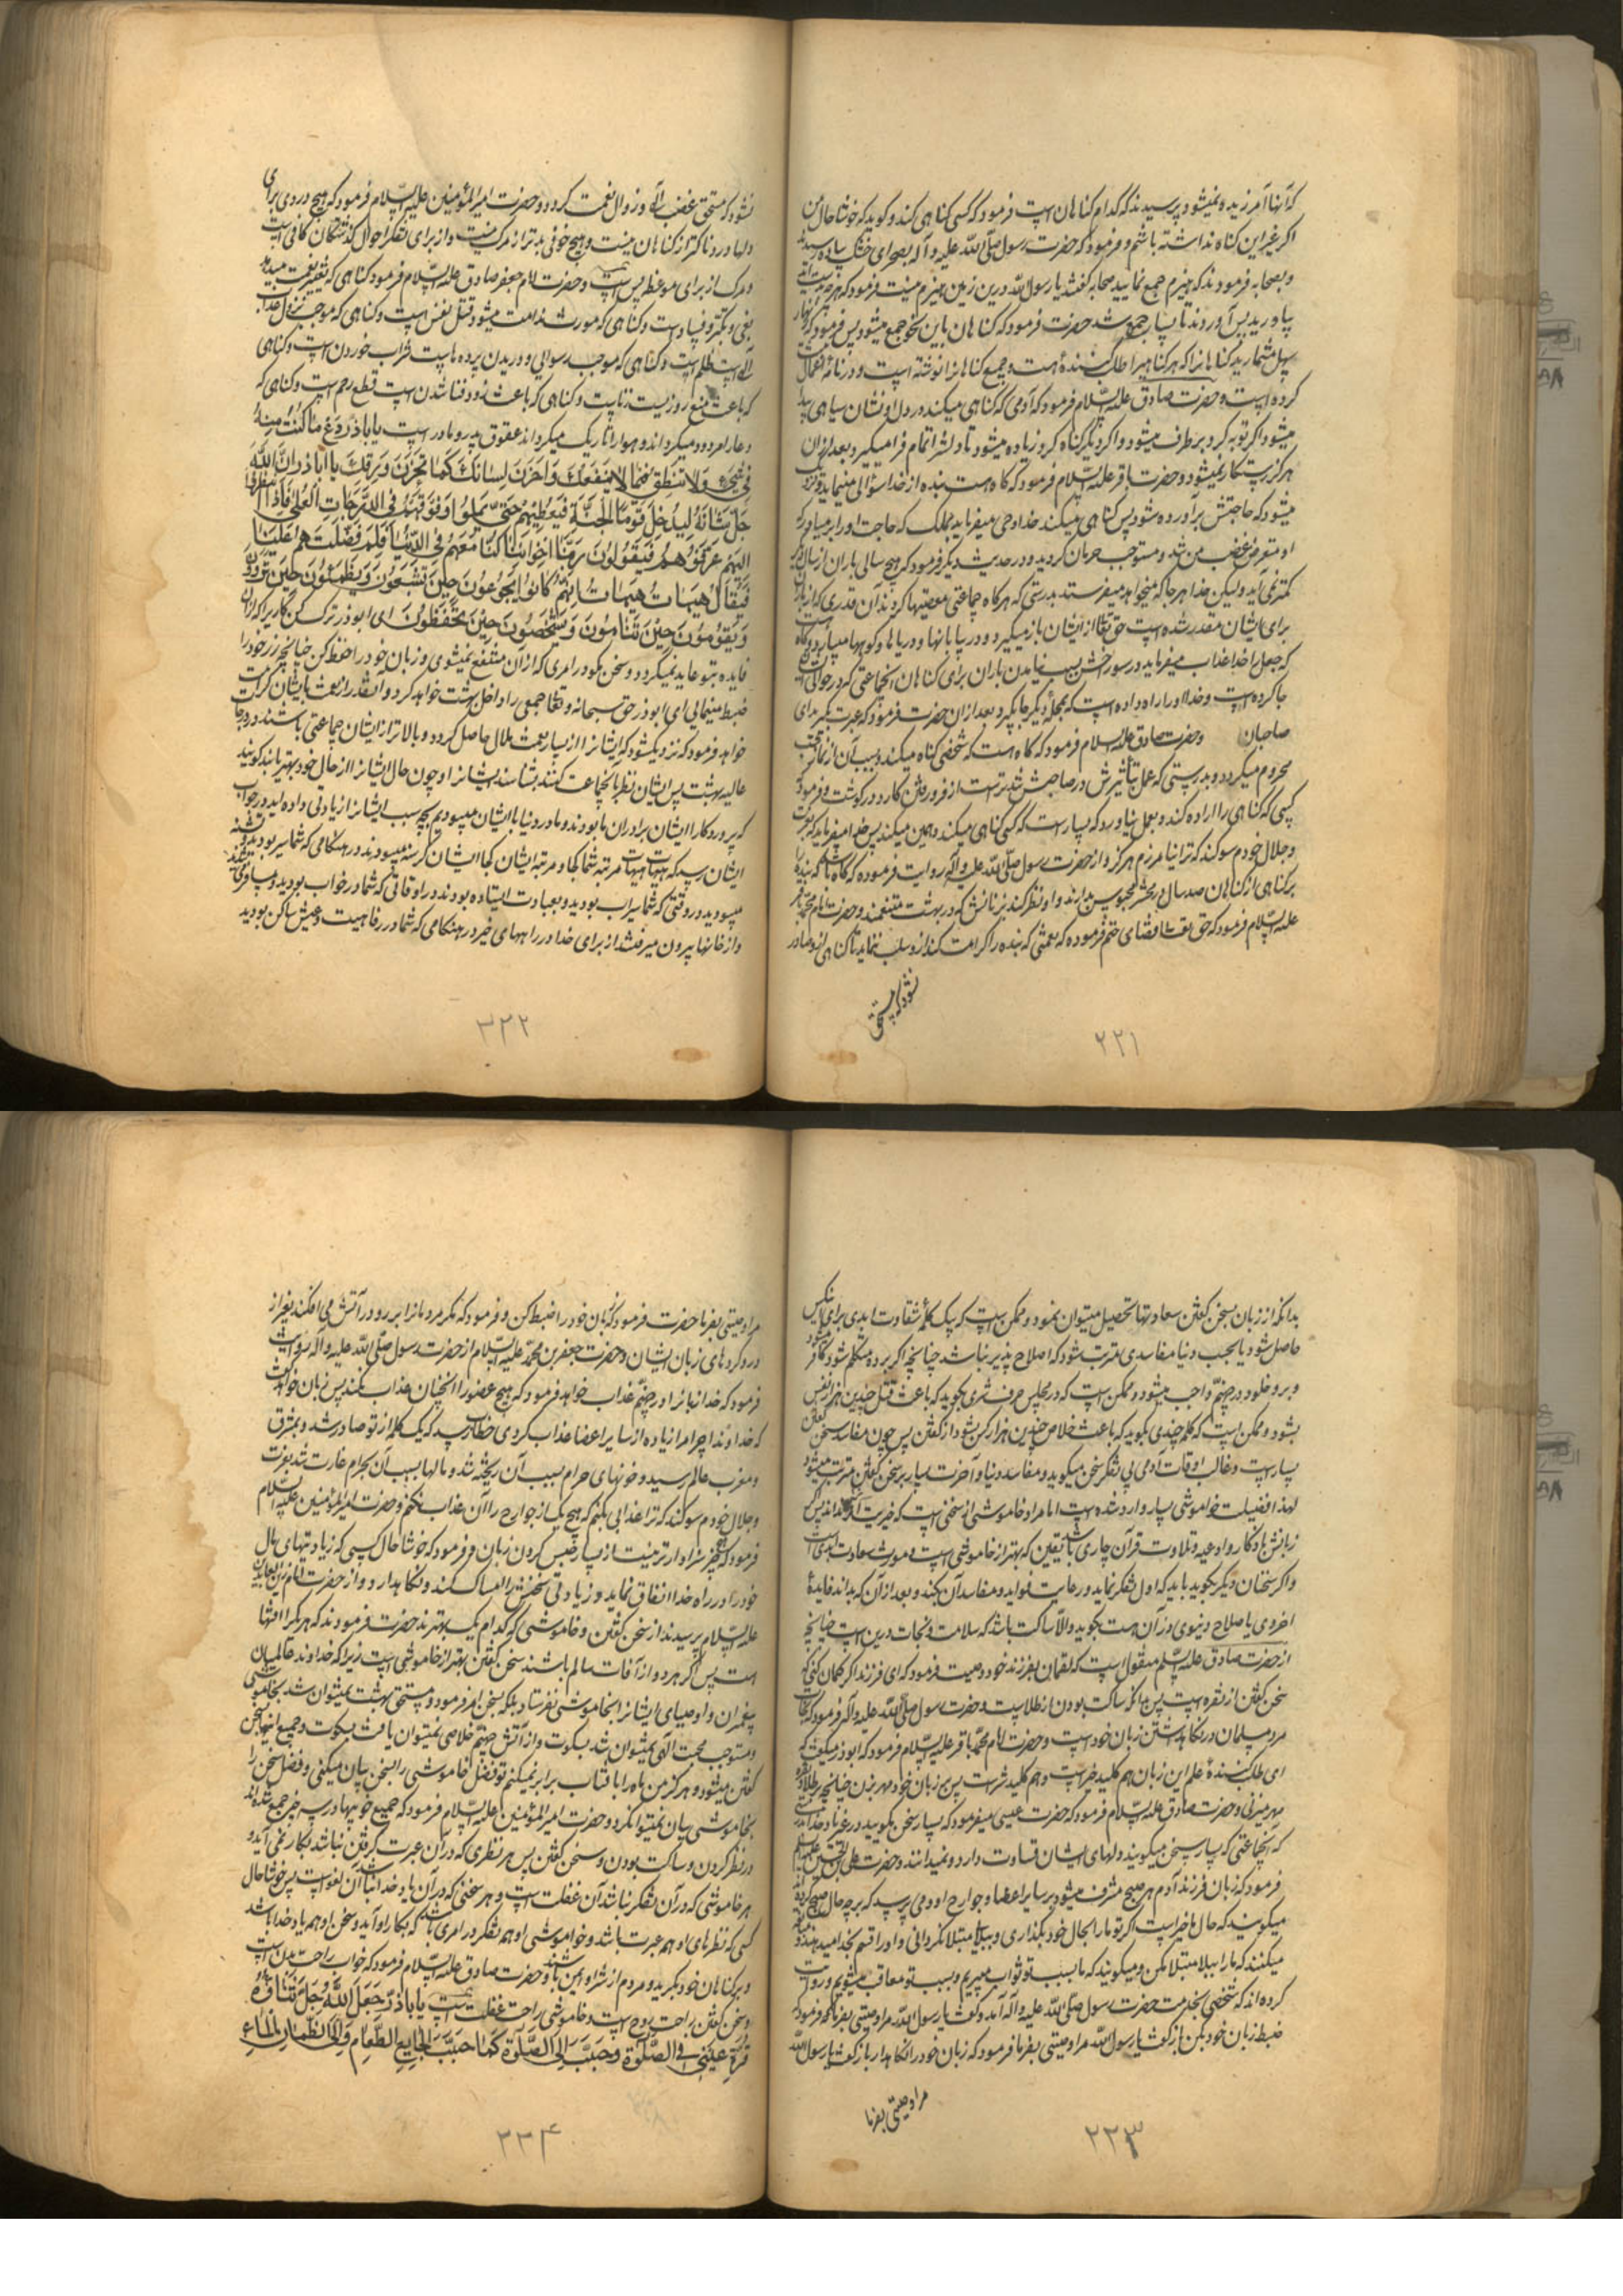 که آنها آمرزیده نمیشود پرسیدند که کدام گناهان است فرمود که کسی گناهی کند و گوید که خوشا حال من
اگر غیر این گناه نداشته باشم و فرمود که حضرت رسول صلّی اللّه علیه و آله بصحرای خشک بی‌گیاه رسیدند
و بصحابه فرمودند که هیزم جمع نمایید صحابه گفتند یا رسول اللّه درین زمین هیزم نیست فرمود که هرچه
بیاورید پس آوردند تا بسیار جمع شد حضرت فرمود که گناهان باین نحو جمع میشود پس فرمود که زنهار
سهل مشمارید گناهانرا که هر گناهیرا طلب کننده هست و جمیع گناهانرا نوشته است و در نامهٔ اعمال
کرده است و حضرت صادق علیه السّلام فرمود که آدمی که گناهی میکند در دل او نشان سیاهی
میشود اگر توبه کرد برطرف میشود و اگر دیگر گناه کرد زیاده میشود تا دلشرا تمام فرا میگیرد و بعد از آن
هرگز رستگار نمیشود و حضرت باقر علیه السّلام فرمود که گاه هست بنده از خدا سؤالی مینماید و نزدیک
میشود که حاجتش برآورده شود پس گناهی میکند خدا وحی میفرماید بملک که حاجت او را برمیاور که
او متعرض غضب من شد و مستوجب حرمان گردید و در حدیث دیگر فرمود که هیچ سالی باران از سال دیگر
کمتر نمی‌آید ولیکن خدا هر جا که میخواهد میفرستد بدرستی که هرگاه جماعتی معصیتها کردند آن قدری که از باران
برای ایشان مقدر شده است حق تعالی از ایشان باز میگیرد و در بیابانها و دریاها و کوهها میبارد
که جعل را خدا عذاب میفرماید در سوراخش بسبب نیامدن باران برای گناهان آنجماعتی که در حوالی ایشان
جا کرده است و خدا او را راه داده است که بمحلّه دیگر جا بگیرد بعد از آن حضرت فرمود که عبرت بگیرید ای
صاحبان و حضرت صادق علیه السلام فرمود که گاه هست که شخصی گناه میکند و بسبب آن از نماز شب
محروم میگردد و بدرستی که عمل بد تأثیرش در صاحبش تندتر است از فرو رفتن کارد در گوشت و فرمود
کسی که گناهی را اراده کند و بعمل نیاورد که بسیار است که کسی گناهی میکند و همین میکند پس خدا میفرماید که بعزت
و جلال خودم سوگند که ترا نیامرزم هرگز و از حضرت رسول صلّی اللّه علیه و آله روایت فرموده که گاه باشد که بنده را
بر گناهی از گناهان صد سال در محشر محبوس بدارند و او نظر کند بزنانش که در بهشت متنعمند و حضرت امام محمد باقر
علیه السّلام فرمود که حق تعالی قضای حتم فرموده که نعمتی که بنده را کرامت کند از و سلب ننماید تا گناهی از و صادر
نشود که مستحق
۲۲۱
نشود که مستحق غضب الٓهی و زوال نعمت گردد و حضرت امیر المؤمنین علیه السّلام فرمود که هیچ دردی برای
دلها دردناکتر از گناهان نیست و هیچ خوفی بدتر از مرگ نیست و از برای تفکر احوال گذشتگان کافی است
و مرگ از برای موعظه بس است و حضرت امام جعفر صادق علیه السّلام فرمود گناهی که تغییر نعمت میدهد
بغی و تکبر و فساد است و گناهی که مورث ندامت میشود قتل نفس است و گناهی که موجب نزول عذاب
الٓهی است ظلم است و گناهی که موجب رسوایی و دریدن پرده هاست شراب خوردن است و گناهی
که باعث منع روزیست زناست و گناهی که باعث زود فنا شدن است قطع رحم است و گناهی که
دعا را مردود میگرداند و هوا را تاریک میگرداند عقوق پدر و مادر است یا باذر دَع ما کنتَ مِنهُ
فی شیء وَلا تنطِق فیما لا یَنفَعُکَ وَاخزُن لِسانَکَ کَما تَخزُنُ وَرِقَکَ یا اباذر اِنَّ اللّهَ
جَلَّ ثَنائهُ لیُدخِلُ قَومًا الجَنَّةَ فَیُعطِیهِم حَتّی یَملّوا وَفوقَهُم قوم فی الدّرَجاتِ العُلی فَاِذا نظروا
اِلَیهِم عَرَفوهُم فَیَقولُونَ رَبَّنا اِخوانُنا کُنّا مَعَهُم فی الدُّنیا فَلِمَ فَضَّلتَهُم عَلَینا
فَیُقالُ هَیهاتَ هَیهاتَ اِنَّهُم کانُوا یَجوعُونَ حینَ تَشبَعُونَ وَیَظمَئُونَ حینَ تَروَونَ
وَیَقُومُونَ حینَ تَنامُونَ وَیَشخَصُونَ حینَ تَحفَظُونَ ای ابوذر ترک کن کاریرا که از آن
فایده بتو عاید نمیگردد و سخن مگو در امری که از آن منتفع نمیشوی و زبان خود را حفظ کن چنانچه زر خود را
ضبط مینمایی ای ابوذر حق سبحانه و تعالی جمعی را داخل بهشت خواهد کرد و آنقدر از نعمت بایشان کرامت
خواهد فرمود که نزدیک شود که ایشانرا از بسیاری نعمت ملال حاصل گردد و بالاتر از ایشان جماعتی باشند در درجات
عالیه بهشت پس ایشان نظر بآنجماعت کنند بشناسند ایشانرا و چون حال ایشانرا از حال خود بهتر یابند گویند
که پروردگارا ایشان برادران ما بودند و ما در دنیا با ایشان میبودیم بچه سبب ایشانرا زیادتی داده اید در جواب
ایشان رسد که هیهات هیهات مرتبه شما کجا و مرتبه ایشان کجا ایشان گرسنه میبودند در هنگامی که شما سیر بودید و تشنه
میبودند در وقتی که شما سیراب بودید و بعبادت ایستاده بودند در اوقاتی که شما در خواب بودید
و از خانها بیرون میرفتند از برای خدا در راههای خیر در هنگامی که شما در رفاهیت و عیش ساکن بودید
۲۲۲
بدانکه از زبان بسخن گفتن سعادتها تحصیل میتوان نمود و ممکن است که بیک کلمه شقاوت ابدی برای این کس
حاصل شود یا بحسب دنیا مفاسدی مترتب شود که اصلاح پذیر نباشد چنانچه اگر برده متکلم شود کافر
و برو خلود در جهنّم واجب میشود و ممکن است که در مجلسی حرف شری بگوید که باعث قتل چندین هزار نفس
بشود و ممکن است که کلمه چندی بگوید که باعث خلاصی چندین هزار کس بشود از کشتن پس چون مفاسد سخن گفتن
بسیار است و غالب اوقات آدمی بی تفکر سخن میگوید و مفاسد دنیا و آخرت بسیار بر سخن گفتن مترتب میشود
لهذا فضیلت خواموشی بسیار وارد شده است اما مراد خاموشی از سخنی است که خیریت آنرا نداند پس اگر
زبانش باذکار و ادعیه و تلاوت قرآن جاری باشد یقین که بهتر از خاموشی است و مورث سعادت ابدی است
و اگر سخنان دیگر بگوید باید که اول تفکر نماید و رعایت فواید و مفاسد آن بکند و بعد از آن که بداند فایدهٔ
اخروی یا صلاح دنیوی در آن هست بگوید و الّا ساکت باشد که سلامت و نجات درین است چنانچه
از حضرت صادق علیه السّلام منقول است که لقمان بفرزند خود وصیت فرمود که ای فرزند اگر گمان کنی که
سخن گفتن از نقره است پس بدانکه ساکت بودن از طلاست و حضرت رسول صلّی اللّه علیه و آله فرمود که نجات
مرد مسلمان در نگاه داشتن زبان خود است و حضرت امام محمّد باقر علیه السّلام فرمود که ابوذر میگفت که
ای طلب کنندهٔ علم این زبان هم کلید خیر است و هم کلید شر است پس بر زبان خود مهر بزن چنانچه بر طلا و نقره
مهر میزنی و حضرت صادق علیه السّلام فرمود که حضرت عیسی میفرمود که بسیار سخن مگویید در غیر یاد خدا بدرستی
که آنجماعتی که بسیار سخن میگویند دلهای ایشان قساوت دارد و نمیدانند و حضرت علی بن الحسین علیه السّلام
فرمود که زبان فرزند آدم هر صبح مشرف میشود بر سایر اعضا و جوارح او و می پرسد که بر چه حال صبح کرده اید
میگویند که حال ما خیر است اگر تو ما را بحال خود بگذاری و ببلایی مبتلا نگردانی و او را قسم بخدا میدهند و
میکنند که ما را ببلا مبتلا مکن و میگویند که ما بسبب تو ثواب میبریم و بسبب تو معاقب میشویم و روایت
کرده اند که شخصی بخدمت حضرت رسول صلّی اللّه علیه و آله آمد و گفت یا رسول اللّه مرا وصیتی بفرما فرمود که
ضبط زبان خود بکن باز گفت یا رسول اللّه مرا وصیتی بفرما فرمود که زبان خود را نگاه دار باز گفت یا رسول اللّه
مرا وصیتی بفرما
۲۲۳
مرا وصیتی بفرما حضرت فرمود که زبان خود را ضبط کن و فرمود که مگر مردمانرا بر رو در آتش می افکند بغیر از
درو کردهای زبان ایشان و حضرت جعفر بن محمّد علیه السّلام از حضرت رسول صلّی اللّه علیه و آله روایت
فرمود که خدا زبانرا در جهنّم عذابی خواهد فرمود که هیچ عضو را آنچنان عذاب نکند پس زبان خواهد گفت
که خداوندا چرا مرا زیاده از سایر اعضا عذاب کردی خطاب رسد که یک کلمه از تو صادر شد و بمشرق
و مغرب عالم رسید و خونهای حرام بسبب آن ریخته شد و مالها بسبب آن بحرام غارت شد بعزت
و جلال خودم سوگند که ترا عذابی بکنم که هیچ یک از جوارح را آن عذاب نکنم و حضرت امیر المؤمنین علیه السّلام
فرمود که هیچ چیز سزاوارتر نیست از بسیار حبس کردن زبان و فرمود که خوشا حال کسی که زیادتیهای مال
خود را در راه خدا انفاق نماید و زیادتی سخنش را امساک کند و نگاه دارد و از حضرت امام زین العابدین
علیه السّلام پرسیدند از سخن گفتن و خاموشی که کدام یک بهترند حضرت فرمودند که هر یک را آفتها
هست پس اگر هر دو از آفات سالم باشند سخن گفتن بهتر از خاموشی است زیرا که خداوند عالمیان
پیغمبران و اوصیای ایشانرا بخاموشی نفرستاد بلکه بسخن امر فرمود و مستحق بهشت نمیتوان شد بخاموشی
و مستوجب محبت الٓهی نمیتوان شد بسکوت و از آتش جهنم خلاصی نمیتوان یافت بسکوت و جمیع اینها بسخن
گفتن میشود و هرگز من ماه را با آفتاب برابر نمیکنم تو فضل خاموشی را بسخن بیان میکنی و فضل سخن را
بخاموشی بیان نمیتوان کرد و حضرت امیر المؤمنین علیه السّلام فرمود که جمیع خوبیها در سه چیز جمع شده اند
در نظر کردن و ساکت بودن و سخن گفتن پس هر نظری که در آن عبرت گرفتن نباشد بکار نمی آید و
هر خاموشی که در آن تفکر نباشد آن غفلت است و هر سخنی که در آن یاد خدا نباشد آن لغو است پس خوشا حال
کسی که نظرهای او همه عبرت باشد و خواموشی او همه تفکر در امری باشد که بکار او آید و سخن او همه یاد خدا باشد
و بر گناهان خود بگرید و مردم از شر او ایمن باشند و حضرت صادق علیه السّلام فرمود که خواب راحت بدن است
و سخن گفتن راحت روح است و خاموشی راحت عقلست یا اباذر جَعَلَ اللّهُ جَلَّ ثَنائُهُ
قُرَّةَ عَینی فی الصَّلوٰةِ وَحَبَّبَ اِلَیَّ الصَّلوٰةَ کَما حَبَّبَ اِلَی الجایِعِ الطَّعامَ وَاِلَی الظَّمآنِ الماءَ
۲۲۴